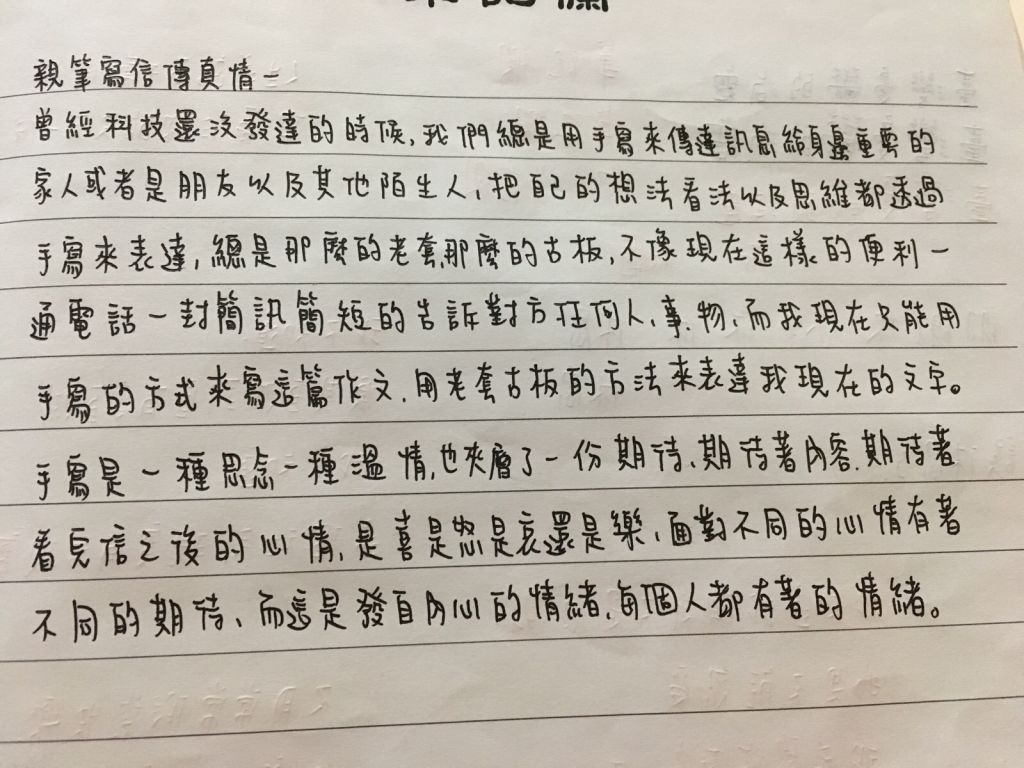 親筆寫信傳真情－
曾經科技還沒發達的時候,我們總是用手寫來傳達訊息給身邊重要的
家人或者是朋友以及其他陌生人,把自己的想法看法以及思維都透過
手寫來表達,總是那麼的老套,那麼的古板,不像現在這樣的便利一
通電話一封簡訊簡短的告訴對方任何人、事、物、而我現在只能用
手寫的方式來寫這篇作文、用老套古板的方法來表達我現在的文字。
手寫是一種思念一種溫情,也夾層了一份期待、期待著內容、期待著
看完信之後的心情、是喜是怒是哀還是樂、面對不同的心情有著
不同的期待、而這是發自內心的情緒、每個人都有著的情緒。